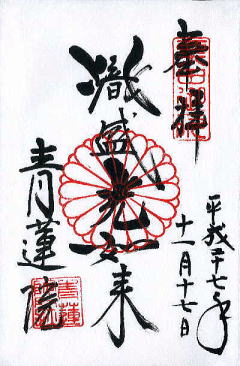 奉拝
平成二十七年
十一月十七日
熾盛光如来
青蓮院